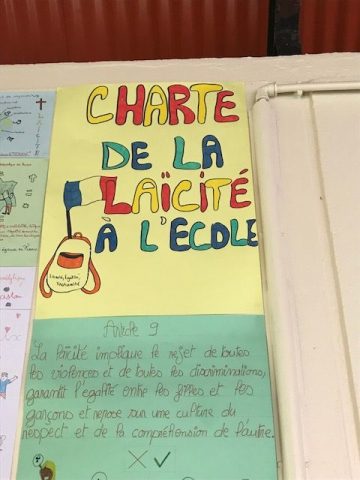 CHARTE
DE LA
LAÏCITÉ
À L'ÉCOLE
Liberté, Égalité,
Fraternité
Article 9
La laïcité implique le rejet de toutes
les violences et de toutes les discriminations,
garantit l'égalité entre les filles et les
garçons et repose sur une culture du
respect et de la compréhension de l'autre.